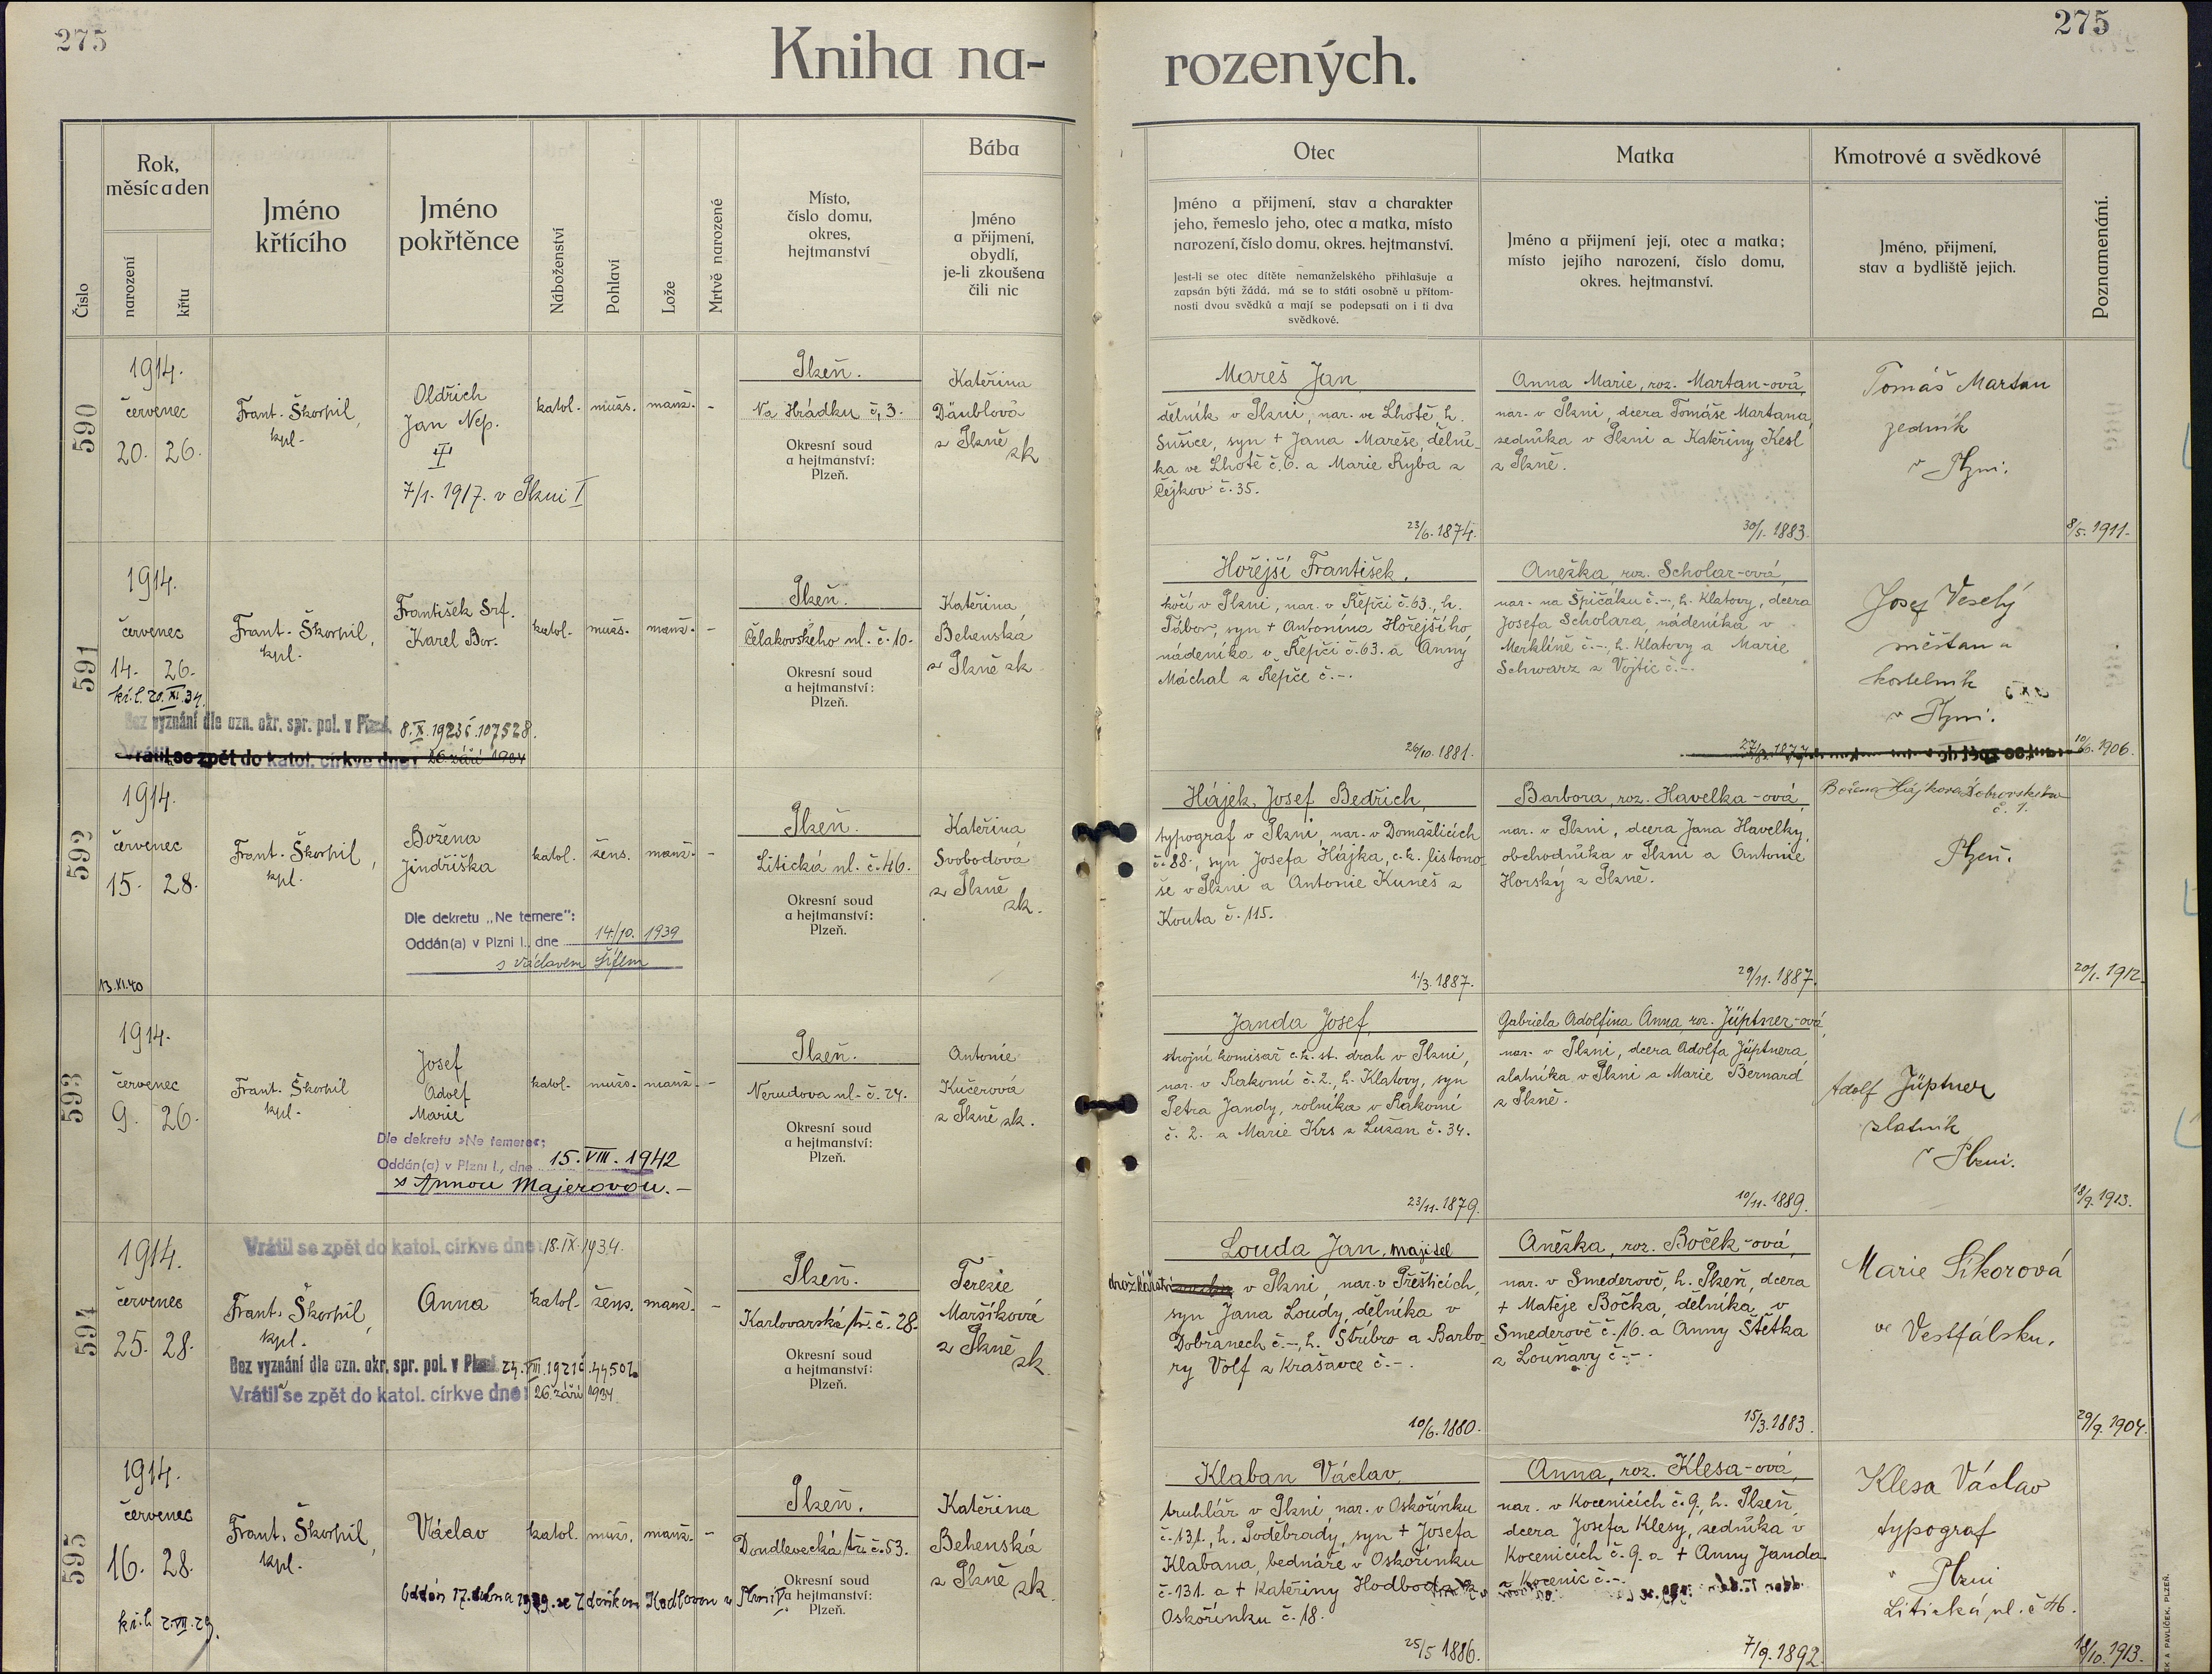 275
275
Kniha na-
rozených.
Číslo
Rok,
měsíc a den
narození
křtu
Jméno
křtícího
Jméno
pokřtěnce
Náboženství
Pohlaví
Lože
Mrtvě narozené
Místo,
číslo domu,
okres,
hejtmanství
Bába
Jméno
a přijmení,
obydlí,
je-li zkoušena
čili nic
Otec
Jméno a přijmení, stav a charakter
jeho, řemeslo jeho, otec a matka, místo
narození, číslo domu, okres. hejtmanství.
Jest-li se otec dítěte nemanželského přihlašuje a
zapsán býti žádá, má se to státi osobně u přítom-
nosti dvou svědků a mají se podepsati on i ti dva
svědkové.
Matka
Jméno a přijmení její, otec a matka;
místo jejího narození, číslo domu,
okres. hejtmanství.
Kmotrové a svědkové
Jméno, přijmení,
stav a bydliště jejich.
Poznamenání.
590
1914.
červenec
20. 26.
Frant. Škorpil,
kpl.
Oldřich
Jan Nep.
7/1. 1917. v Plzni I
katol.
mužs.
manž.
-
Plzeň.
Na Hrádku č. 3.
Okresní soud
a hejtmanství:
Plzeň.
Kateřina
Däublová
z Plzně
zk
Mareš Jan,
dělník v Plzni, nar. ve Lhotě, h.
Sušice, syn + Jana Mareše, dělní-
ka ve Lhotě č. 6. a Marie Ryba z
Čejkov č. 35.
23/6. 1874.
Anna Marie, roz. Martan-ová,
nar. v Plzni, dcera Tomáše Martana,
zedníka v Plzni a Kateřiny Kesl
z Plzně.
30/1. 1883.
Tomáš Martan
zedník
v Plzni.
8/5. 1911.
591
1914.
červenec
14. 26.
kř. l. 20. XI. 34.
Frant. Škorpil,
kpl.
František Srf.
Karel Bor.
katol.
mužs.
manž.
-
Plzeň.
Čelakovského ul. č. 10.
Okresní soud
a hejtmanství:
Plzeň.
Kateřina
Behenská
z Plzně zk.
Bez vyznání dle ozn. okr. spr. pol. v Plzni 8. X. 1923 č. 107528.
Vrátil se zpět do katol. církve dne: 26. září 1934
Hořejší František,
kočí v Plzni, nar. v Řepči č. 63., h.
Tábor, syn + Antonína Hořejšího
nádeníka v Řepči č. 63. a Anny
Máchal z Řepče č. -.
26/10. 1881.
Anežka, roz. Scholar-ová,
nar. na Špičáku č. -, h. Klatovy, dcera
Josefa Scholara, nádeníka v
Merklíně č. -, h. Klatovy a Marie
Schwarz z Vojtic č. -.
Josef Veselý
měšťan a
kostelník
v Plzni.
10/6. 1906.
592
1914.
červenec
15. 28.
13. XI. 40
Frant. Škorpil,
kpl.
Božena
Jindřiška
katol.
žens.
manž.
-
Plzeň.
Litická ul. č. 46.
Okresní soud
a hejtmanství:
Plzeň.
Kateřina
Svobodová
z Plzně
zk.
Dle dekretu „Ne temere":
Oddán(a) v Plzni I., dne 14./10. 1939
s Václavem
Hájek, Josef Bedřich,
typograf v Plzni, nar. v Domažlicích
č. 88., syn Josefa Hájka, c. k. listono-
še v Plzni a Antonie Kuneš z
Kouta č. 115.
1./3. 1887.
Barbora, roz. Havelka-ová,
nar. v Plzni, dcera Jana Havelky,
obchodníka v Plzni a Antonie
Horský z Plzně.
29/11. 1887.
Božena Hájkova
č. 1.
Plzeň.
20/1. 1912.
593
1914.
červenec
9. 26.
Frant. Škorpil
kpl.
Josef
Adolf
Marie
katol.
mužs.
manž.
-
Plzeň.
Nerudova ul. č. 24.
Okresní soud
a hejtmanství:
Plzeň.
Antonie
Kučerová
z Plzně zk.
Dle dekretu »Ne temere«:
Oddán(a) v Plzni I., dne 15. VIII. 1942
s Annou Majerovou. -
Janda Josef,
strojní komisař c. k. st. drah v Plzni,
nar. v Rakomi č. 2., h. Klatovy, syn
Petra Jandy, rolníka v Rakomi
č. 2. a Marie Krs z Lužan č. 34.
23/11. 1879.
Gabriela Adolfina Anna, roz. Jüptner-ová,
nar. v Plzni, dcera Adolfa Jüptnera,
zlatníka v Plzni a Marie Bernard
z Plzně.
10/11. 1889.
Adolf Jüptner
zlatník
v Plzni.
18/9. 1913.
594
1914.
červenec
25. 28.
Vrátil se zpět do katol. církve dne: 18. IX. 1934.
Frant. Škorpil,
kpl.
Anna
katol.
žens.
manž.
-
Plzeň.
Karlovarská tř. č. 28.
Okresní soud
a hejtmanství:
Plzeň.
Terezie
Maršíková
z Plzně
zk.
Bez vyznání dle ozn. okr. spr. pol. v Plzni 24. VIII. 1921 č. 44502
Vrátila se zpět do katol. církve dne: 26. září 1934.
Louda Jan, majitel
v Plzni, nar. v Přešticích,
syn Jana Loudy, dělníka v
Dobřanech č. -, h. Stříbro a Barbo-
ry Volf z Krašovce č. -.
10/6. 1880.
Anežka, roz. Boček-ová,
nar. v Smederově, h. Plzeň, dcera
+ Matěje Bočka, dělníka v
Smederově č. 16. a Anny Štětka
z Louňavy č. -.
15/3. 1883.
Marie Sikorová
ve Vestfálsku.
29/9. 1904.
595
1914.
červenec
16. 28.
kř. l. 2. VII. 29.
Frant. Škorpil,
kpl.
Václav
katol.
mužs.
manž.
-
Plzeň.
Doudlevecká tř. č. 53.
Okresní soud
a hejtmanství:
Plzeň.
Kateřina
Behenská
z Plzně zk.
Oddán 17. dubna 1939 se Zdeňkou Kodlovou v Plzni
Klaban Václav,
truhlář v Plzni, nar. v Oskořínku
č. 131., h. Poděbrady, syn + Josefa
Klabana, bednáře v Oskořínku
č. 131. a + Kateřiny
Oskořínku č. 18.
25/5 1886.
Anna, roz. Klesa-ová,
nar. v Kocenicích č. 9., h. Plzeň,
dcera Josefa Klesy, zedníka v
Kocenicích č. 9. a + Anny Janda
z Kocenic č. -.
7/9. 1892.
Klesa Václav
typograf
v Plzni
Litická ul. č. 46.
18/10. 1913.